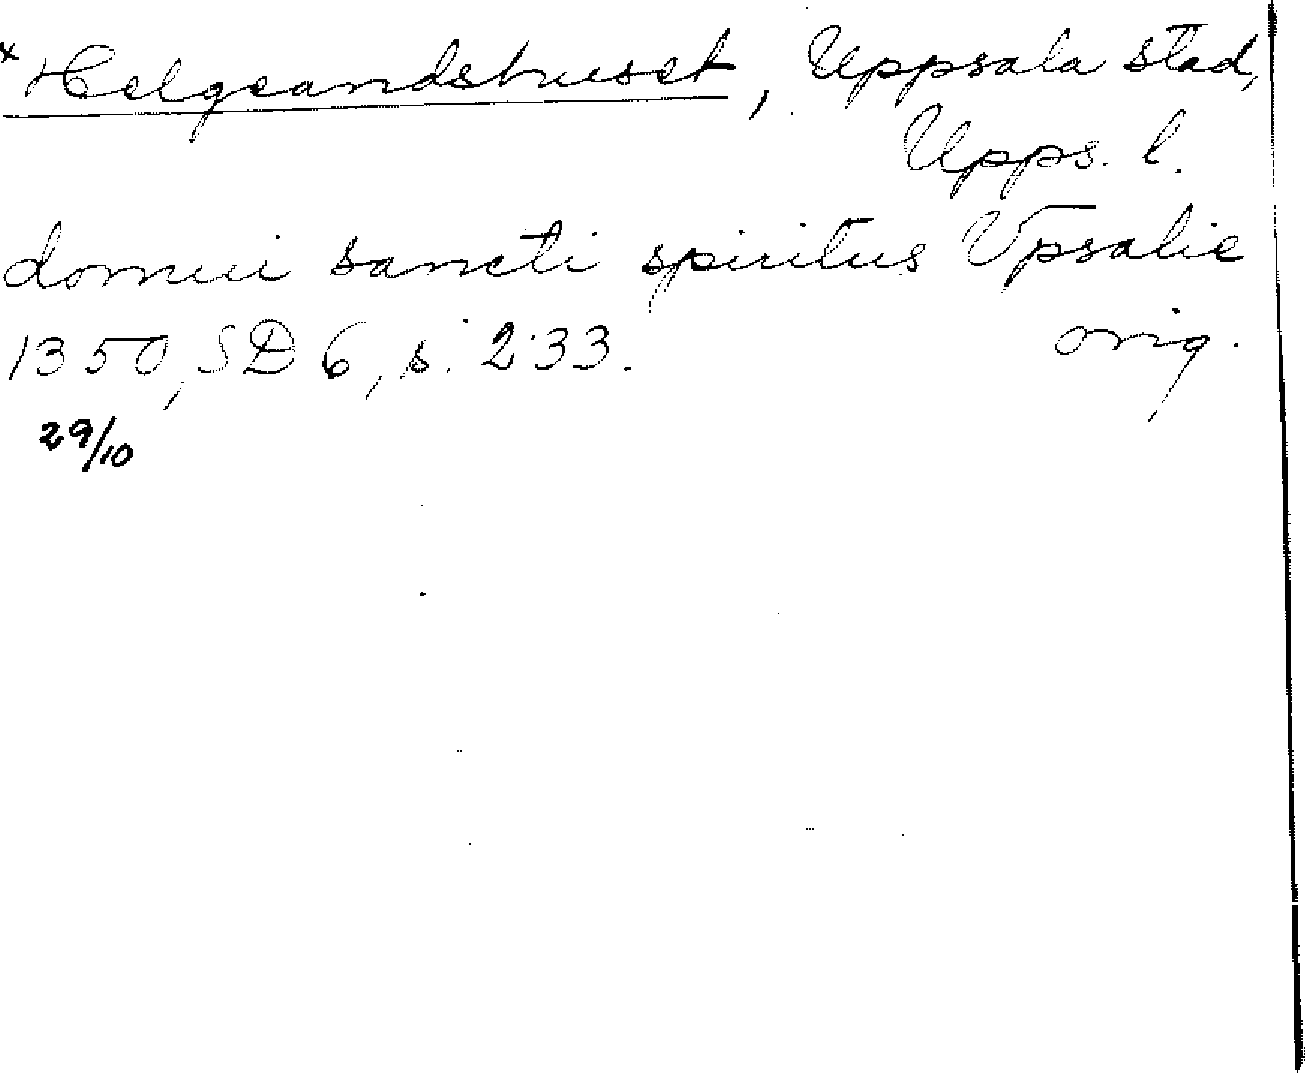 x Helgeandshuset, Uppsala stad,
Upps. l.
domui sancti spiritus Vpsalie
1350, SD 6, s. 233. orig.
29/10